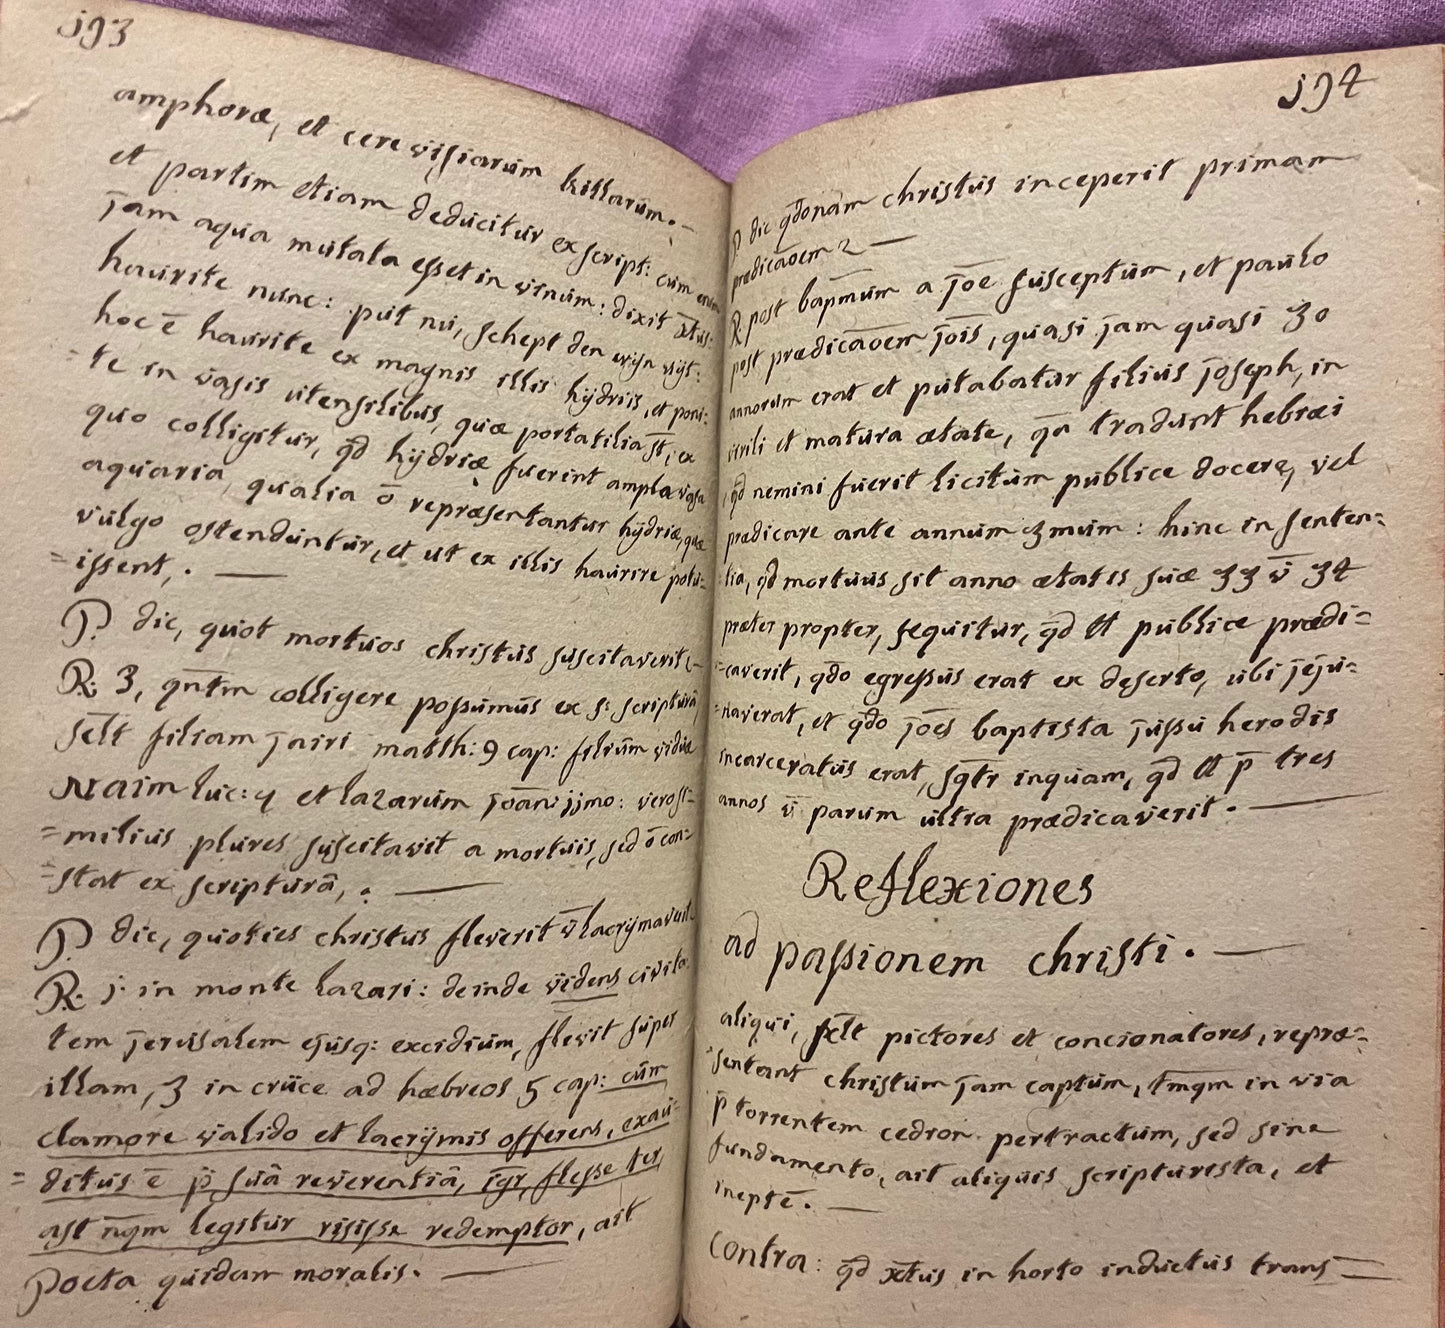 193
amphoræ, et cerevisiarum killarum. -
et partim etiam deducitur ex script: cum enim
jam aqua mutata esset in vinum: dixit x̄tus:
haurite nunc: put nu, schept den wijn uijt:
hoc ē haurite ex magnis illis hÿdriis, et poni:
= te in vasis utensilibus, quæ portatilia s̄t, ex
quo colligitur, qd̄ hÿdriæ fuerint ampla vasa
aquaria, qualia ō repræsentantur hÿdriæ, quæ
vulgo ostenduntur, et ut ex illis haurire potu=
= issent, . —
P. dic, quot mortuos christus suscitaverit? -
R: 3, qn̄tm colligere possumus ex s: scripturâ,
sc̄lt filiam jairi matth: 9 cap: filium viduæ
Naim luc: 4 et lazarum joāni jjmo: verosi=
= milius plures suscitavit a mortuis, sed ō con=
= stat ex scripturâ, . —
P. dic, quoties christus fleverit v̄ lacrÿmaverit
R: j. in monte lazari: deinde videns civita
tem jerusalem ejusq: excidium, flevit super
illam, 3 in cruce ad hæbreos 5 cap: cum
clamore valido et lacrÿmis offerens, exau=
= ditus ē p̄ suâ reverentiâ, īgr, flesse ter,
ast nūqm legitur risisse redemptor, ait
Poeta quidam moralis. —
194
P. dic qd̄onam christus inceperit primam
prædicāoem? —
R. post bapm̄um a jōe susceptum, et paulo
post prædicāoem jōis, quasi jam quasi 30
annorum erat et putabatur filius joseph, in
virili et matura ætate, qa tradunt hebræi
, qd̄ nemini fuerit licitum publice docere, vel
prædicare ante annum 3mum: hinc in senten=
tia, qd̄ mortuus sit anno ætatis suæ 33 v̄ 34
præter propter, sequitur, qd̄ tt publice prædi=
=caverit, qd̄o egressus erat ex deserto, ubi jeju=
=naverat, et qd̄o jōes baptista jussu herodis
incarceratus erat, sq̄tr inquam, qd̄ tt p̄ tres
annos v̄ parum ultra prædicaverit. —
Reflexiones
ad passionem christi. —
aliqui, sc̄lt pictores et concionatores, repræ=
=sentant christum jam captum, tm̄qm in via
p̄ torrentem cedron pertractum, sed sine
fundamento, ait aliquis scripturista, et
ineptē. —
Contra: qd̄ x̄tus in horto inductus trans=